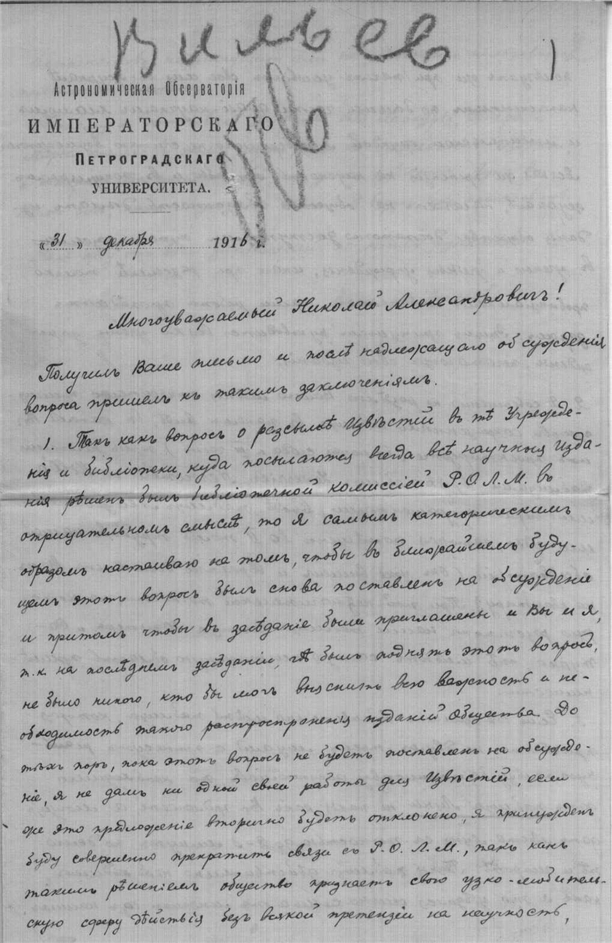 Вильев
1
Астрономическая Обсерваторія
ИМПЕРАТОРСКАГО
ПЕТРОГРАДСКАГО
УНИВЕРСИТЕТА.
„31" декабря 1916 г.
Многоуважаемый Николай Александровичъ!
Получилъ Ваше письмо и послѣ надлежащаго обсужденія
вопроса пришелъ къ такимъ заключеніямъ.
1. Такъ какъ вопросъ о разсылкѣ Извѣстій въ тѣ Учрежде-
нія и библіотеки, куда посылаются всегда всѣ научныя изда-
нія рѣшенъ былъ библіотечной комиссіей Р.О.Л.М. въ
отрицательномъ смыслѣ, то я самымъ категорическимъ
образомъ настаиваю на томъ, чтобы въ ближайшемъ буду-
щемъ этотъ вопросъ былъ снова поставленъ на обсужденіе
и притомъ чтобы въ засѣданіе были приглашены и Вы и я,
т.к. на послѣднемъ засѣданіи, гдѣ былъ поднятъ этотъ вопросъ,
не было никого, кто бы могъ выяснить всю важность и не-
обходимость такого распространенія изданій Общества. До
тѣхъ поръ, пока этотъ вопросъ не будетъ поставленъ на обсужде-
ніе, я не дамъ ни одной своей работы для Извѣстій, если
же это предложеніе вторично будетъ отклонено, я принужденъ
буду совершенно прекратить связи съ Р.О.Л.М., такъ какъ
такимъ рѣшеніемъ общество признаетъ свою узко-любитель-
скую сферу дѣйствія безъ всякой претензіи на научность,